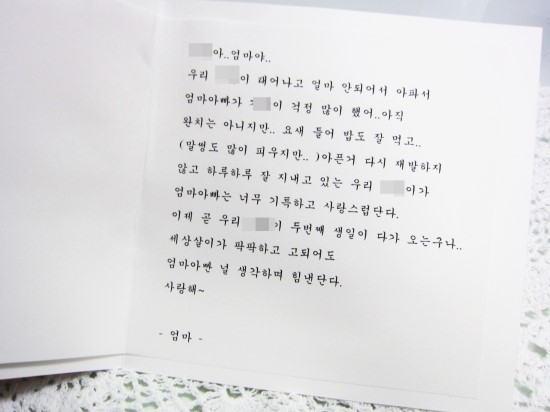 아..엄마야..
우리 이 태어나고 얼마 안되어서 아파서
엄마아빠가 이 걱정 많이 했어..아직
완치는 아니지만.. 요새 들어 밥도 잘 먹고..
(말썽도 많이 피우지만.. )아픈거 다시 재발하지
않고 하루하루 잘 지내고 있는 우리 이가
엄마아빠는 너무 기특하고 사랑스럽단다.
이제 곧 우리 두번째 생일이 다가 오는구나..
세상살이가 팍팍하고 고되어도
엄마아빤 널 생각하며 힘낸단다.
사랑해~
- 엄마 -